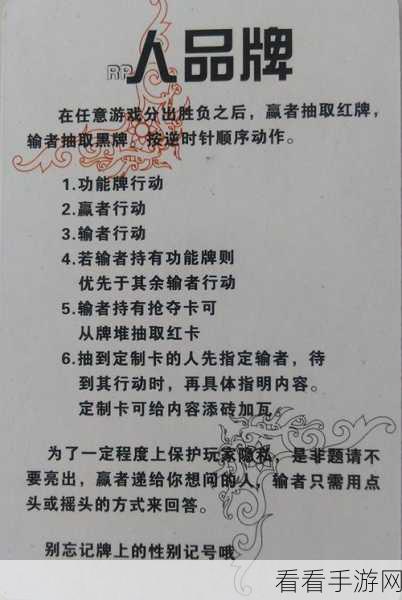 RP人品牌
在任意游戏分出胜负之后，赢者抽取红牌，
输者抽取黑牌，按逆时针顺序动作。
1.功能牌行动
2.赢者行动
3.输者行动
4.若输者持有功能牌则
优先于其余输者行动
5.输者持有抢夺卡可
从牌堆抽取红卡
6.抽到定制卡的人先指定输者，待
到其行动时，再具体指明内容。
定制卡可给内容添砖加瓦。
为了一定程度上保护玩家隐私，是非题请不
要亮出，赢者递给你想问的人，输者只需用点
头或摇头的方式来回答。
别忘记牌上的性别记号哦
看看手游网